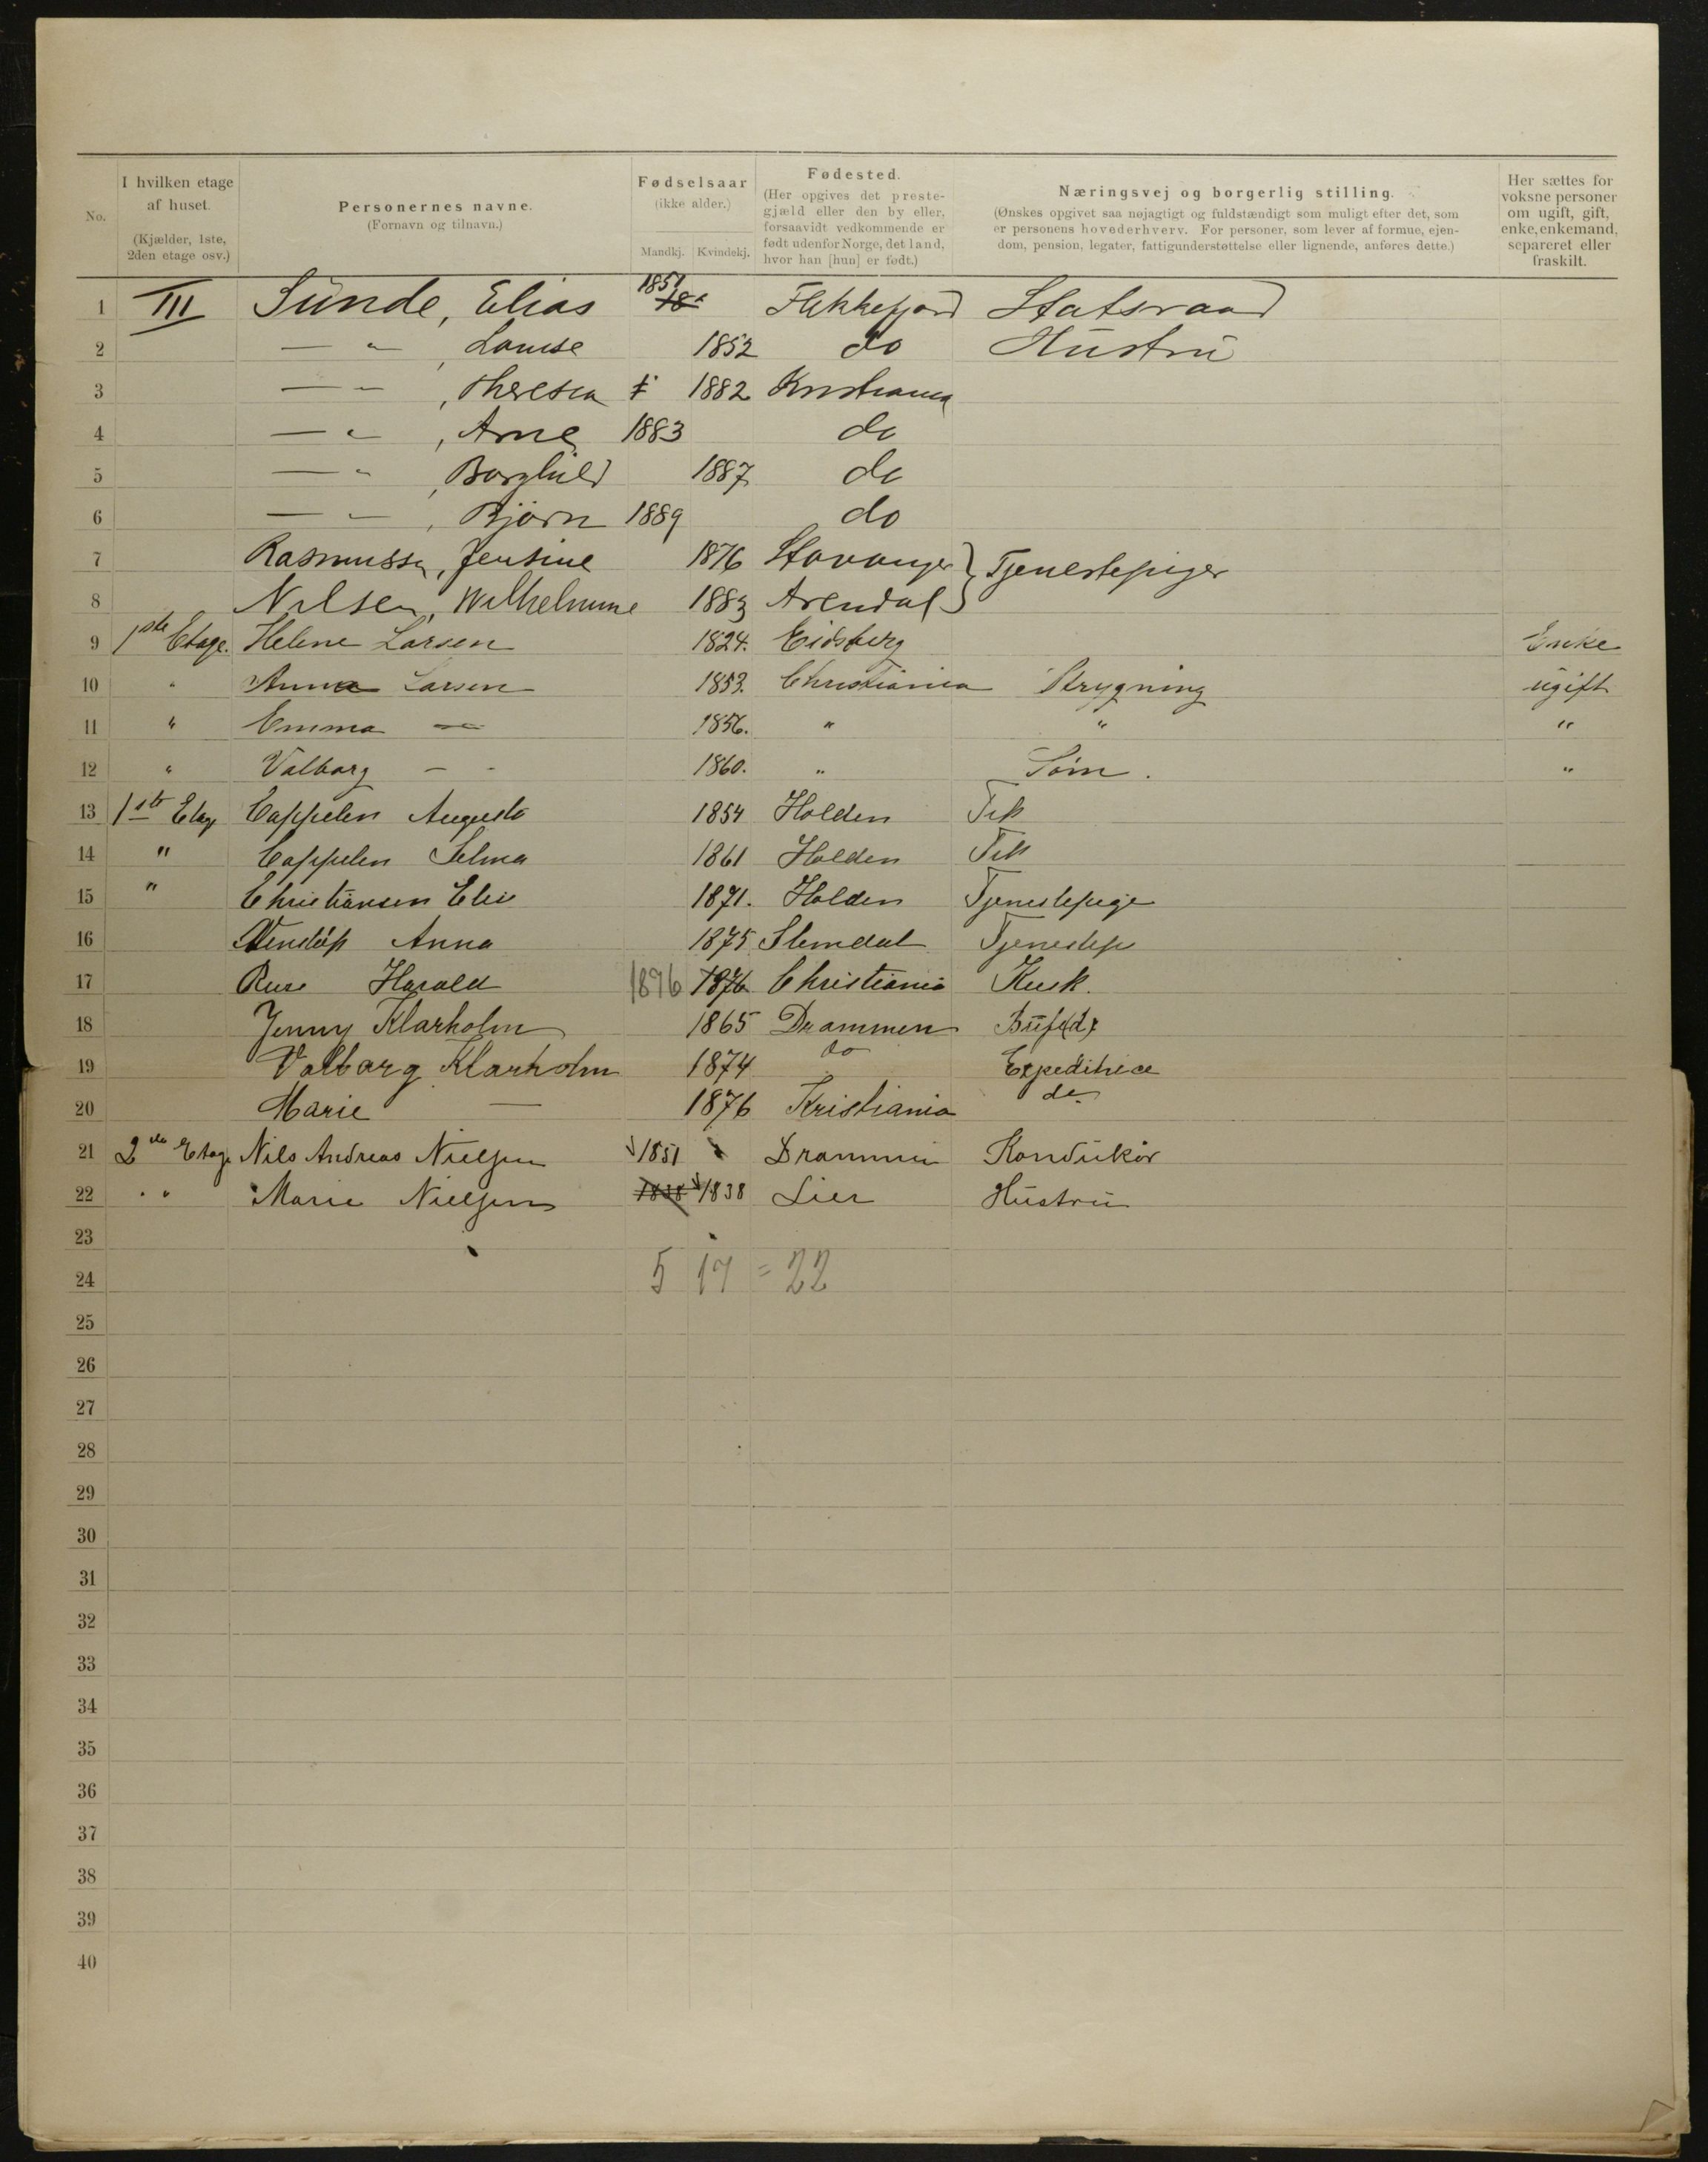 No. I hvilken etage af huset. (Kjælder, 1ste, 2den etage osv.) Personernes navne. (Fornavn og tilnavn.) Fødselsaar (ikke alder.) Mandkj. Kvindekj. Fødested. (Her opgives det prestegjæld eller den by eller, forsaavidt vedkommende er født udenfor Norge, det land, hvor han [hun] er født.) Næringsvej og borgerlig stilling. (Ønskes opgivet saa nøjagtigt og fuldstændigt som muligt efter det, som er personens hovederhverv. For personer, som lever af formue, ejendom, pension, legater, fattigunderstøttelse eller lignende, anføres dette.) Her sættes for voksne personer om ugift, gift, enke, enkemand, separeret eller fraskilt.
1 III Sunde, Elias 1851 Flekkefjord Statsraad
2 — " , Louise 1852 do Hustru
3 — " , Theresia 1882 Kristiania
4 — " , Arne 1883 do
5 — " , Borghild 1887 do
6 — " , Bjørn 1889 do
7 Rasmussen, Jensine 1876 Stavanger } Tjenestepiger
8 Nilsen, Wilhelmine 1883 Arendal }
9 1ste Etage. Helene Larsen 1824. Eidsberg Enke
10 " Anna Larsen 1853. Christiania Strygning ugift
11 " Emma — 1856. " " "
12 " Valborg — 1860. " Søm. "
13 1ste Etag Cappelen Augusta 1854 Holden
14 " Cappelen Selma 1861 Holden
15 " Christiansen Elis 1871. Holden Tjenestepige
16 Anna 1875 Slemdal Tjenestep
17 Harald 1876 1876 Christiania Kusk.
18 Jenny Klarholm 1865 Drammen
19 Valborg Klarholm 1874 do Expeditrice
20 Marie — 1876 Kristiania do
21 2den Etage Nils Andreas Nielsen 1851 Drammen Konduktør
22 " " Marie Nielsen 1838 1838 Lier Hustru
23
24 5 17 = 22
25
26
27
28
29
30
31
32
33
34
35
36
37
38
39
40